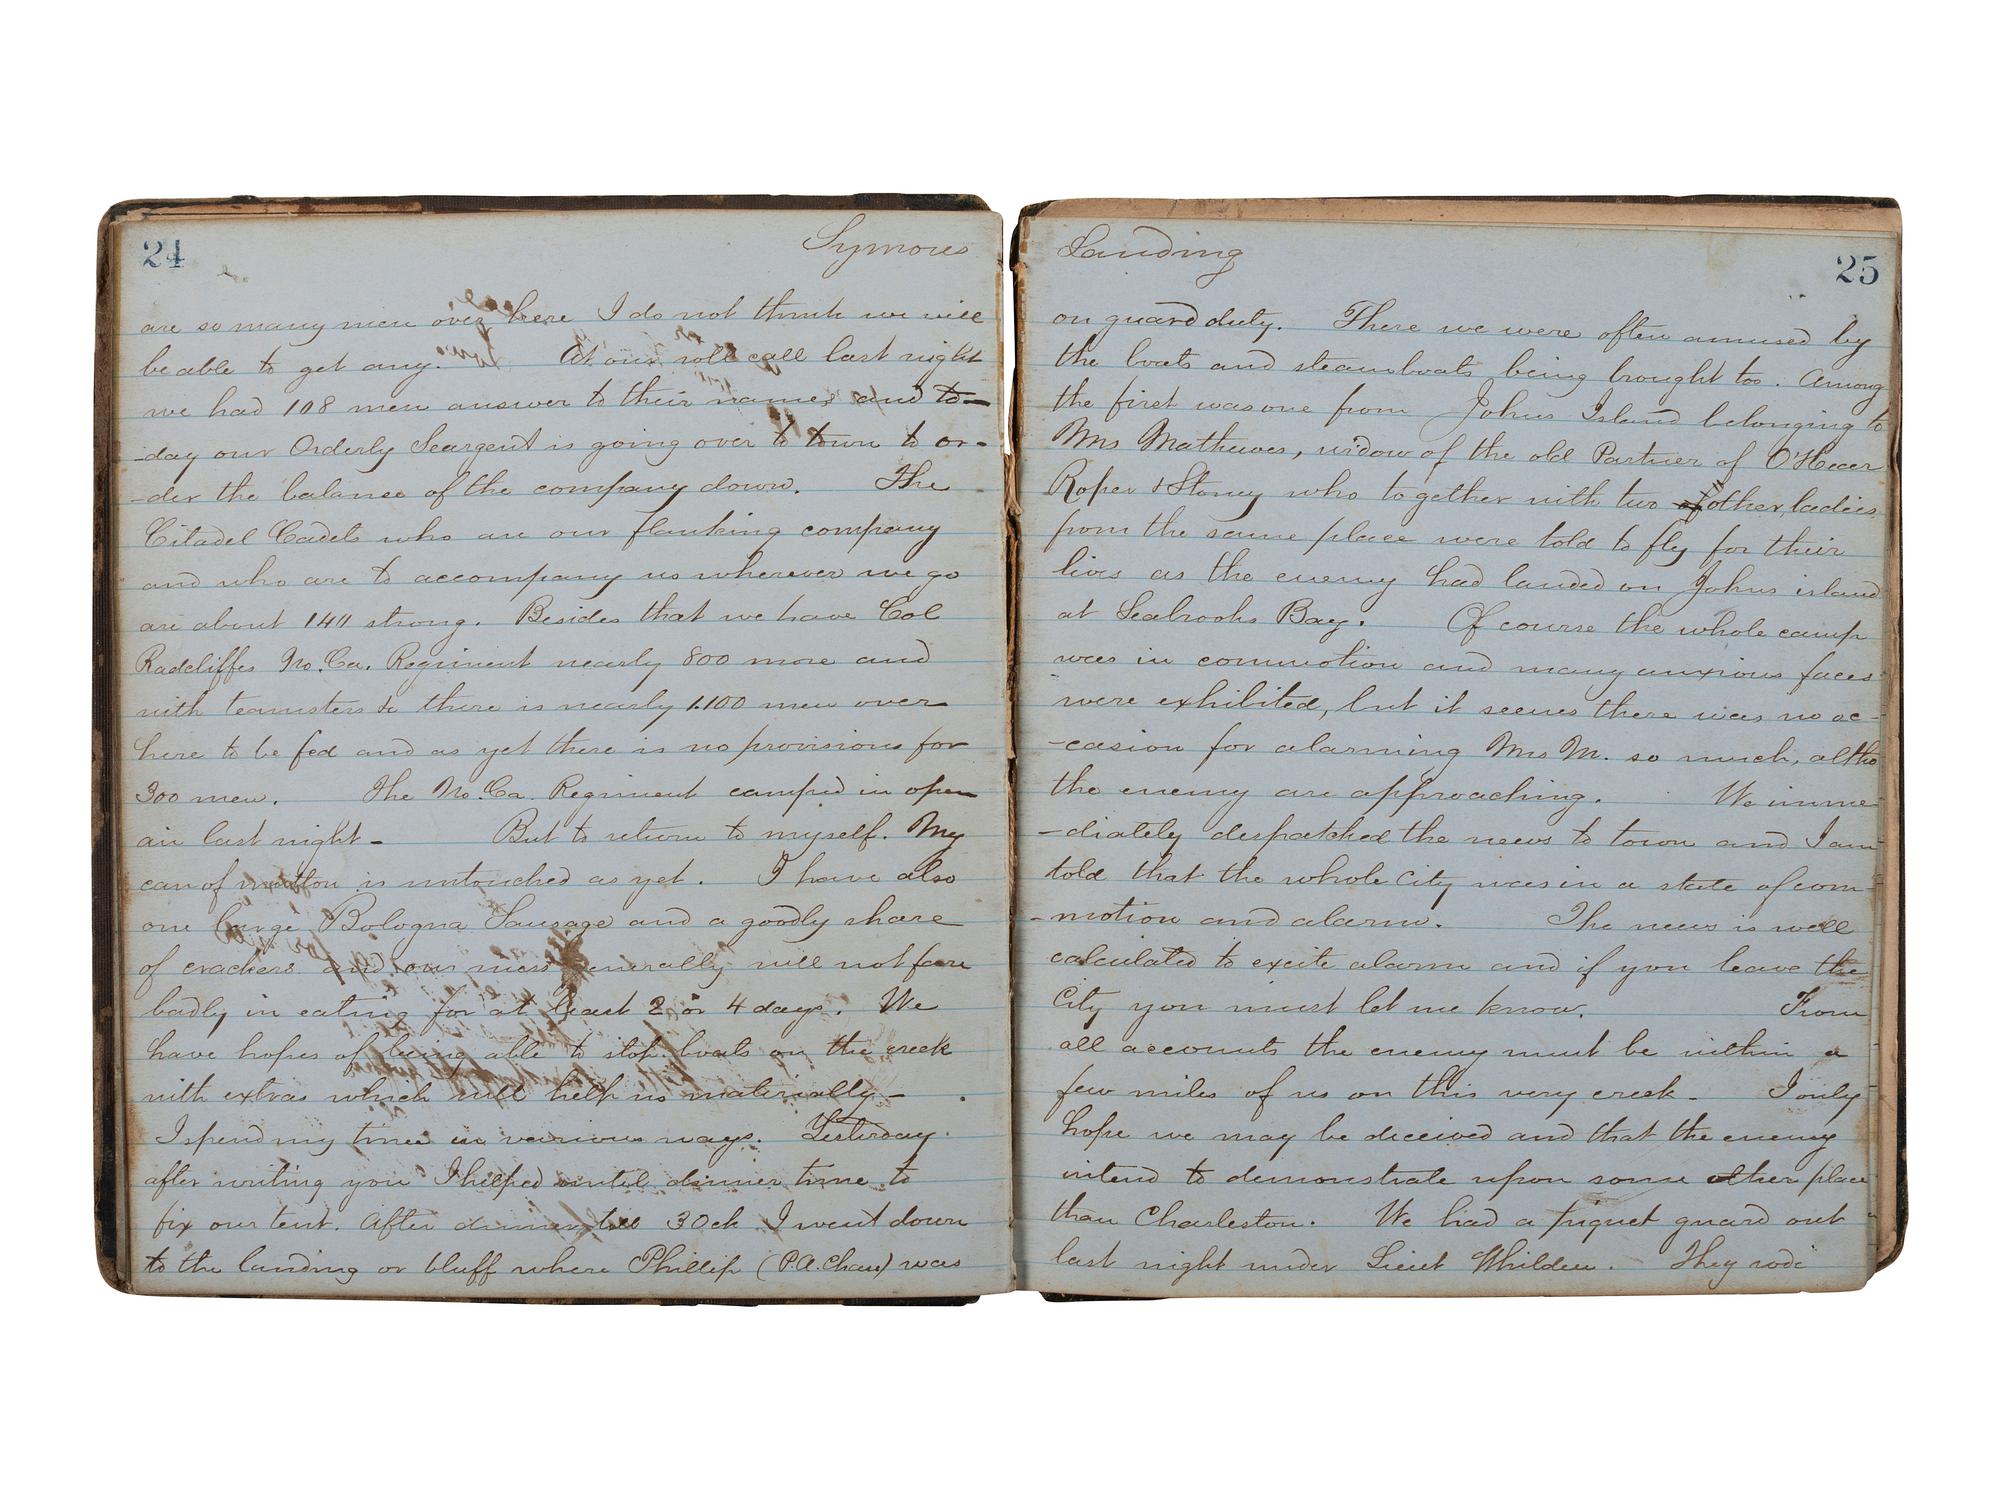 24
Symons
are so many men over here I do not think we will
be able to get any. At our roll call last night
we had 108 men answer to their names and to-
-day our Orderly Seargent is going over to town to or-
-der the balance of the company down. The
Citadel Cadets who are our flanking company
and who are to accompany us wherever we go
are about 140 strong. Besides that we have Col
Radcliffes No. Ca. Regiment nearly 800 more and
with teamsters &c there is nearly 1.100 men over
here to be fed and as yet there is no provisions for
300 men. The No. Ca. Regiment camped in open
air last night -  But to return to myself. My
can of mutton is untouched as yet. I have also
one large Bologna Sausage and a goodly share
of crackers and our mess generally will not fare
badly in eating for at least 2 or 4 days. We
have hopes of being able to stop boats on the creek
with extras which will help us materially -
I spend my time in various ways. Yesterday
after writing you I helped until dinner time to
fix our tent. After dinner till 3 Ock I went down
to the landing or bluff where Phillip (P.A. Chau) was
Landing
25
on guard duty. There we were often amused by
the boats and steamboats being brought too. Among
the first was one from Johns Island belonging to
Mrs Mathewes, widow of the old Partner of O'Hear
Roper & Stoney who together with two other ladies
from the same place were told to fly for their
lives as the enemy had landed on Johns island
at Seabrooks Bay. Of course the whole camp
was in commotion and many anxious faces
were exhibited, but it seems there was no oc-
-casion for alarming Mrs M. so much, altho
the enemy are approaching. We imme-
-diately despatched the news to town and I am
told that the whole City was in a state of com-
-motion and alarm. The news is well
calculated to excite alarm and if you leave the
City you must let me know. From
all accounts the enemy must be within a
few miles of us on this very creek - I only
hope we may be deceived and that the enemy
intend to demonstrate upon some other place
than Charleston. We had a piquet guard out
last night under Lieut Whilden. They rode